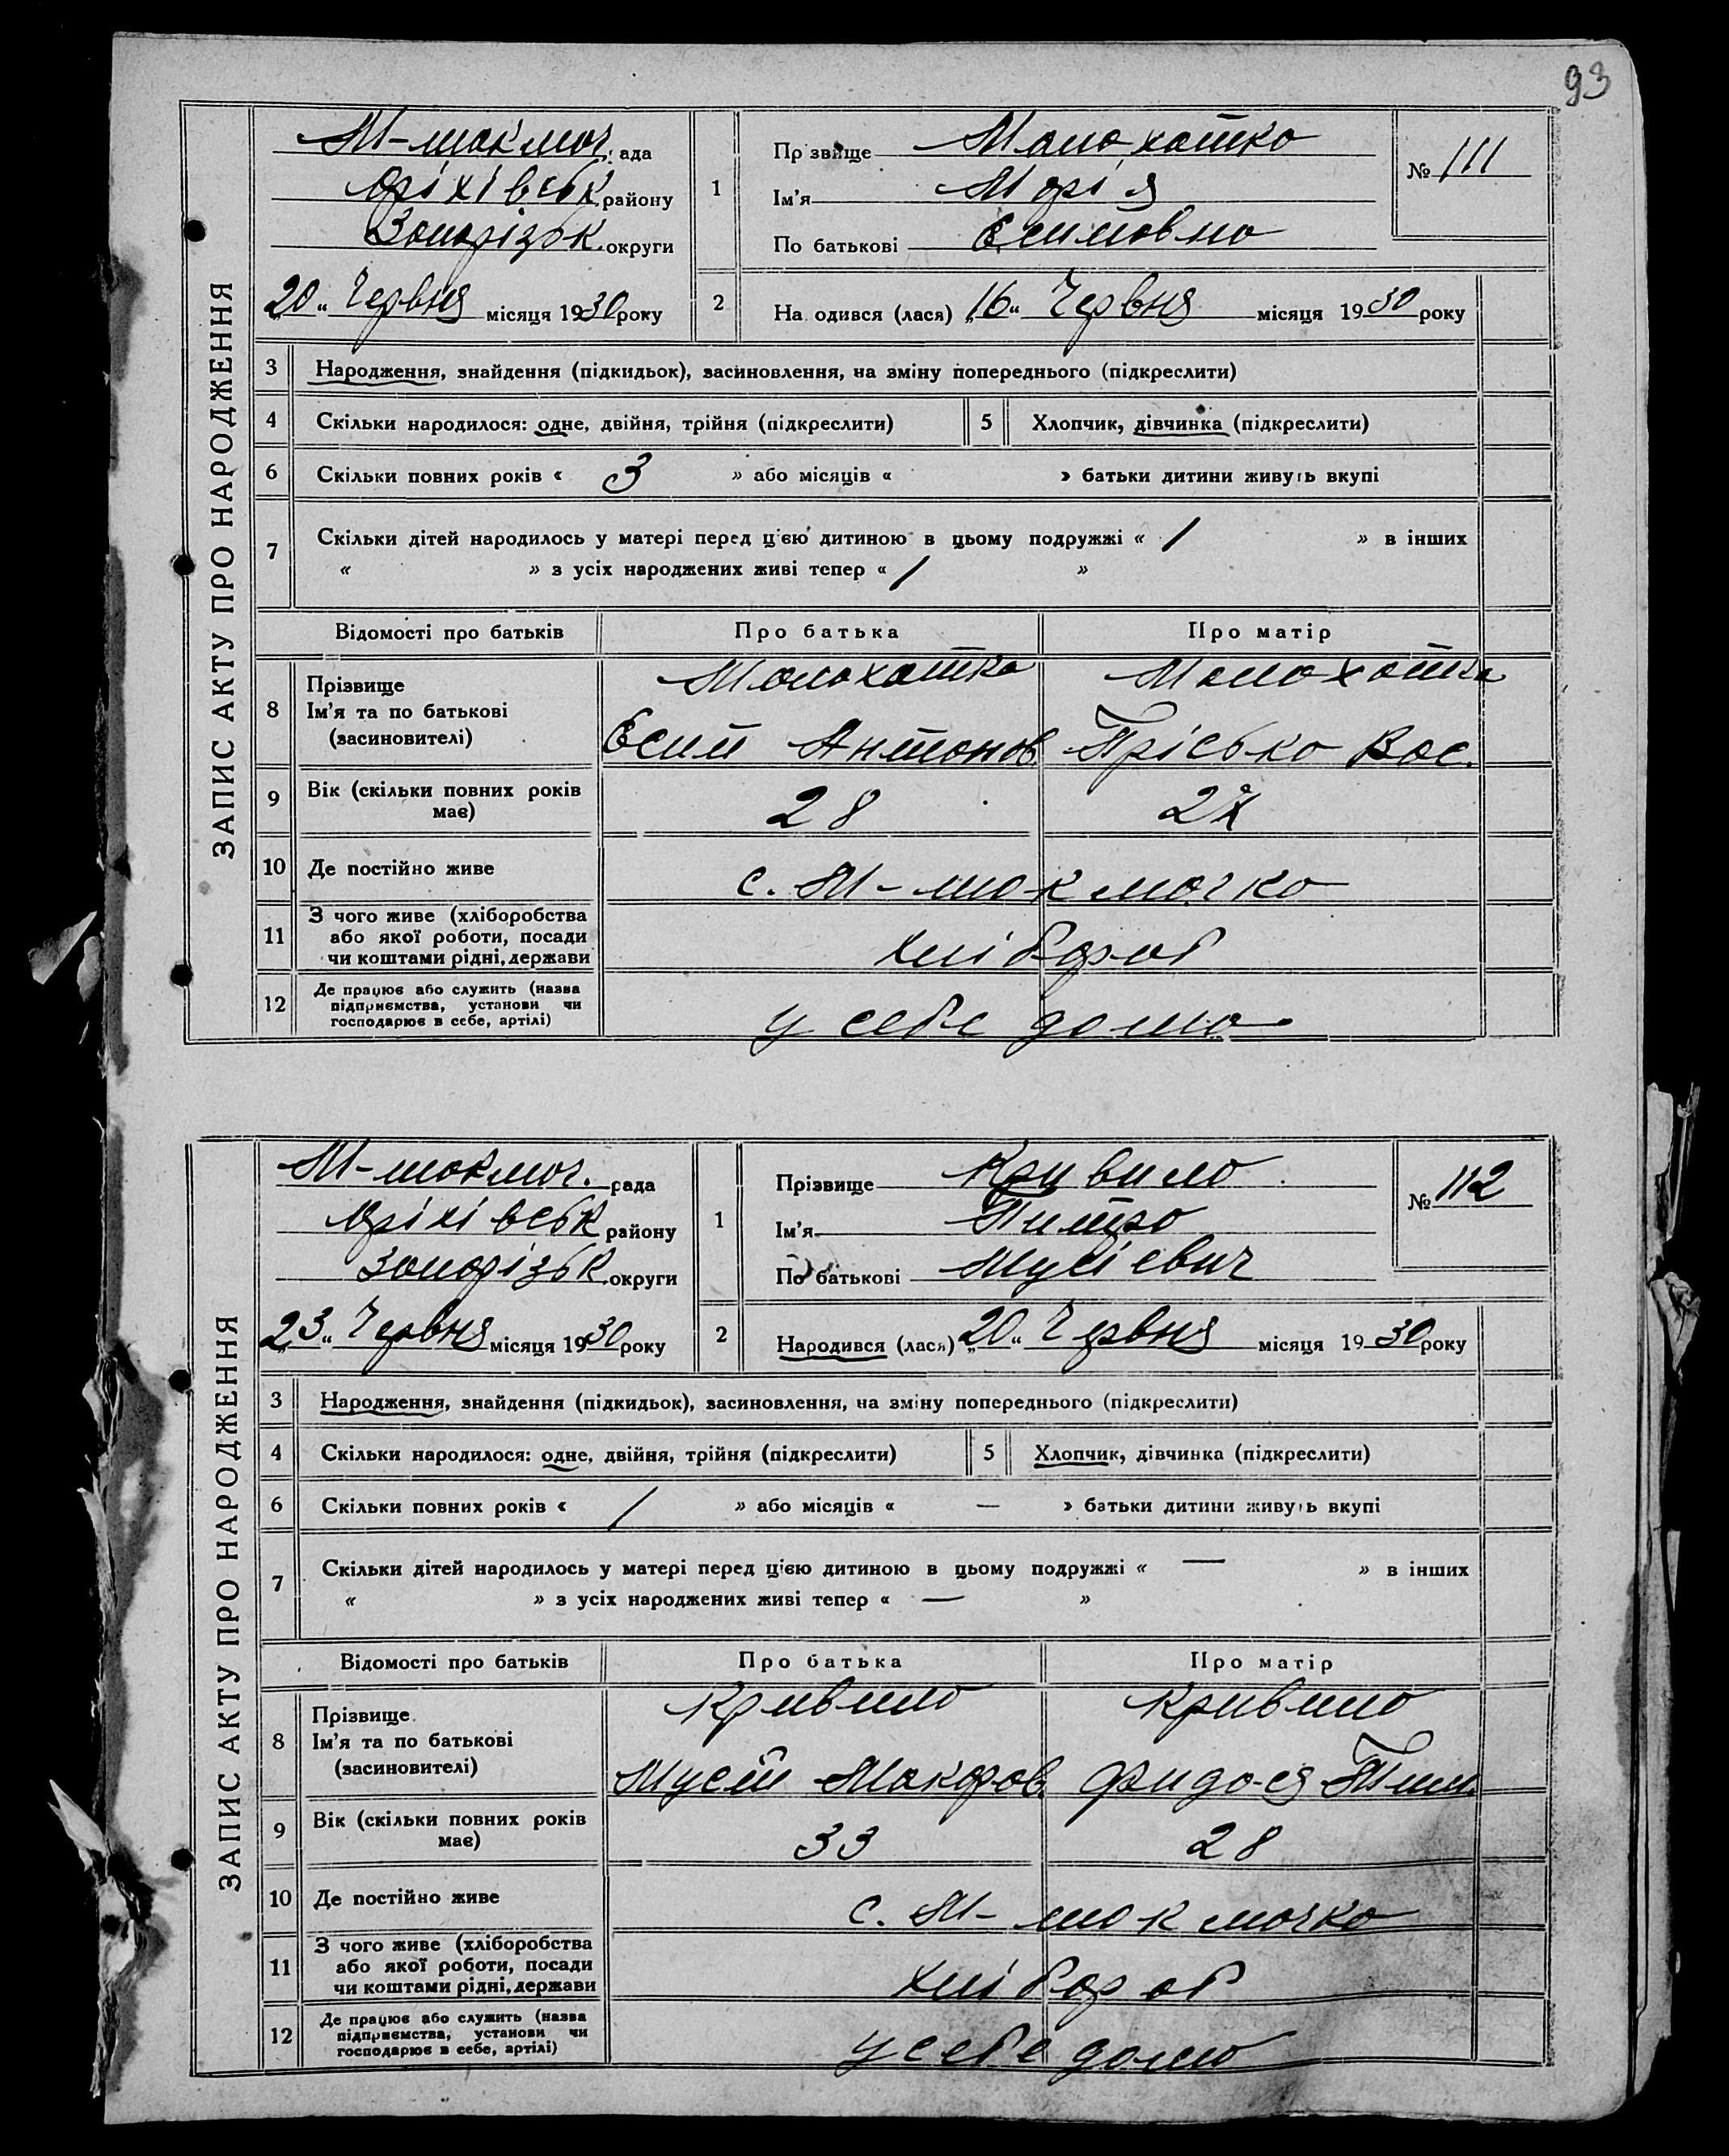 93
ЗАПИС АКТУ ПРО НАРОДЖЕННЯ
М-токмач. рада
Оріхівськ. району
Запорізьк. округи
„20„ Червня місяця 1930 року
1
Прізвище Малохатко
Ім'я Марія
По батькові Єсимовно
№ 111
2
На одився (лася) „16„ Червня місяця 1930 року
3 Народження, знайдення (підкидьок), засиновлення, на зміну попереднього (підкреслити)
4 Скільки народилося: одне, двійня, трійня (підкреслити) 5 Хлопчик, дівчинка (підкреслити)
6 Скільки повних років « 3 » або місяців « » батьки дитини живуть вкупі
7 Скільки дітей народилось у матері перед цією дитиною в цьому подружжі « 1 » в інших
« » з усіх народжених живі тепер « 1 »
Відомості про батьків Про батька Про матір
8 Прізвище Малохатко Малохатко
Ім'я та по батькові
(засновителі) Єсип Антонов. Прісько Вас.
9 Вік (скільки повних років має) 28 27
10 Де постійно живе с. М-токмачко
11 З чого живе (хліборобства
або якої роботи, посади
чи коштами рідні, держави хлібороб
12 Де працює або служить (назва
підприємства, установи чи
господарює в себе, артілі) у себе дома
ЗАПИС АКТУ ПРО НАРОДЖЕННЯ
М-токмач. рада
Оріхівськ району
Запорізьк. округи
„23„ Червня місяця 1930 року
1
Прізвище Кривило
Ім'я Питро
По батькові Мусієвич
№ 112
2
Народився (лася) „20„ Червня місяця 1930 року
3 Народження, знайдення (підкидьок), засиновлення, на зміну попереднього (підкреслити)
4 Скільки народилося: одне, двійня, трійня (підкреслити) 5 Хлопчик, дівчинка (підкреслити)
6 Скільки повних років « 1 » або місяців « — » батьки дитини живуть вкупі
7 Скільки дітей народилось у матері перед цією дитиною в цьому подружжі « — » в інших
« » з усіх народжених живі тепер « — »
Відомості про батьків Про батька Про матір
8 Прізвище Кривило Кривило
Ім'я та по батькові
(засиновителі) Мусій Макаров.
9 Вік (скільки повних років має) 33 28
10 Де постійно живе с. М-токмачко
11 З чого живе (хліборобства
або якої роботи, посади
чи коштами рідні, держави хлібороб
12 Де працює або служить (назва
підприємства, установи чи
господарює в себе, артілі) у себе дома